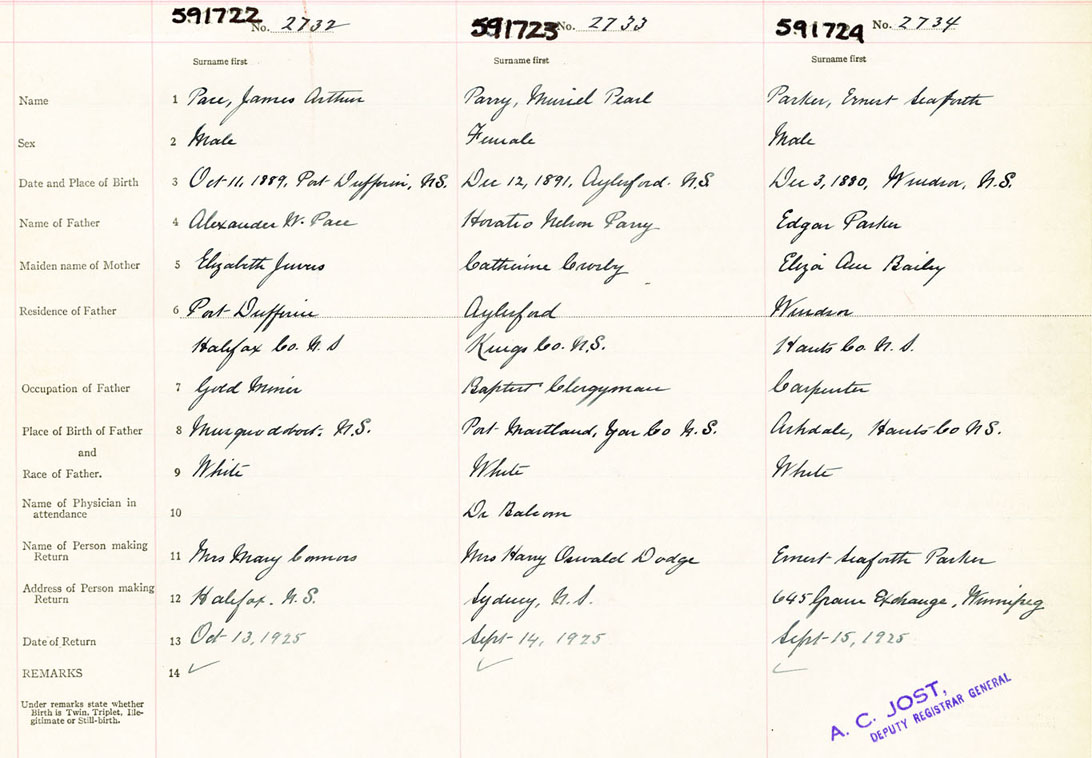 591722 No. 2732 591723 No. 2733 591724 No. 2734
Surname first Surname first Surname first
Name 1 Pace, James Arthur Parry, Muriel Pearl Parker, Ernest Seaforth
Sex 2 Male Female Male
Date and Place of Birth 3 Oct 11, 1889, Port Dufferin, N.S. Dec 12, 1891, Aylesford. N.S Dec 3, 1880, Windsor, N.S.
Name of Father 4 Alexander W. Pace Horatio Nelson Parry Edgar Parker
Maiden name of Mother 5 Elizabeth Catherine Crosby Eliza Ann Bailey
Residence of Father 6 Port Dufferin Aylesford Windsor
Halifax Co. N.S Kings Co. N.S. Hants Co. N.S.
Occupation of Father 7 Gold Miner Baptist Clergyman Carpenter
Place of Birth of Father 8 Musquodobot. N.S. Port Maitland, Yar Co N.S. Ashdale, Hants Co N.S.
and
Race of Father. 9 White White White
Name of Physician in
attendance 10 Dr Balcom
Name of Person making
Return 11 Mrs Mary Connors Mrs Harry Oswald Dodge Ernest Seaforth Parker
Address of Person making
Return 12 Halifax. N.S. Sydney, N.S. 645 Grain Exchange, Winnipeg
Date of Return 13 Oct 13, 1925 Sept 14, 1925 Sept 15, 1925
REMARKS 14 ✓ ✓ ✓
Under remarks state whether
Birth is Twin, Triplet, Ille-
gitimate or Still-birth.
A. C. JOST,
DEPUTY REGISTRAR GENERAL